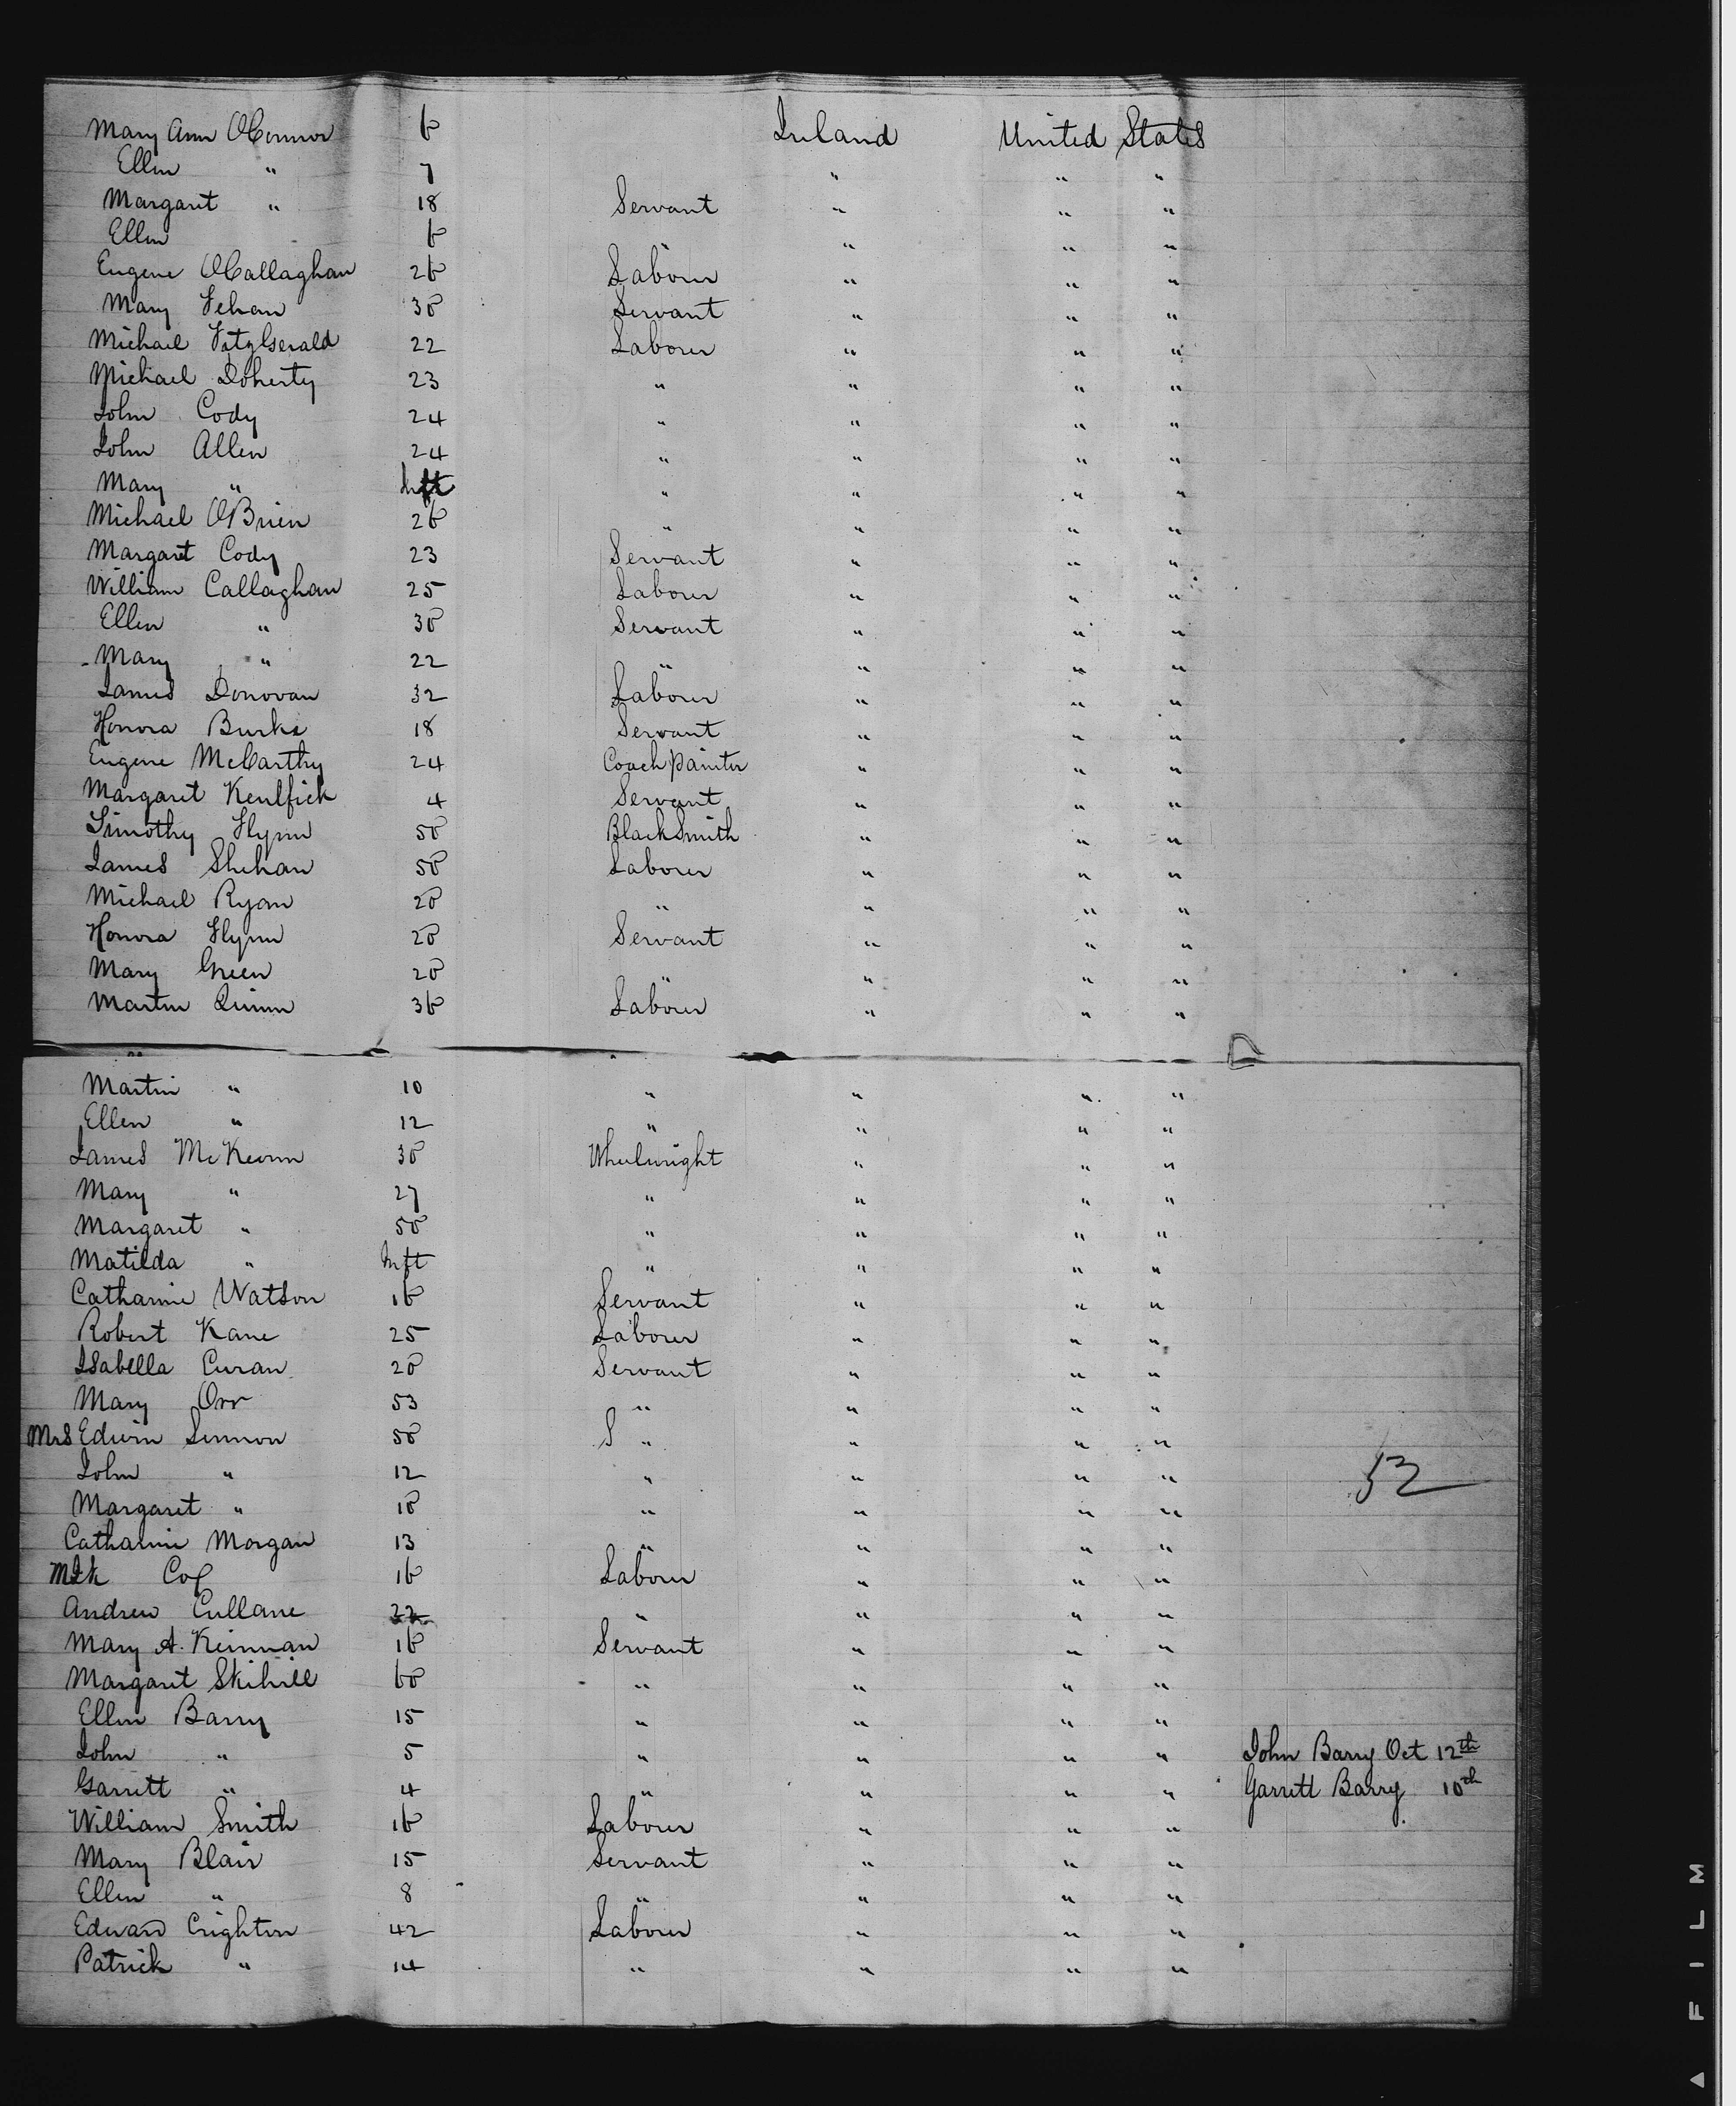 Mary Ann OConnor 6 Ireland United States
Ellen " 7 " " "
Margaret " 18 Servant " " "
Ellen 6 " " " "
Eugene OCallaghan 26 Laborer " " "
Mary Fehan 30 Servant " " "
Michael FitzGerald 22 Laborer " " "
Michael Doherty 23 " " " "
John Cody 24 " " " "
John Allen 24 " " " "
Mary " Inft " " " "
Michael OBrien 26 " " " "
Margaret Cody 23 Servant " " "
William Callaghan 25 Laborer " " "
Ellen " 30 Servant " " "
Mary " 22 " " " "
James Donovan 32 Laborer " " "
Honora Burke 18 Servant " " "
Eugene McCarthy 24 Coach painter " " "
Margaret Kenlfick 4 Servant " " "
Timothy Flynn 50 BlackSmith " " "
James Shehan 50 Laborer " " "
Michael Ryan 20 " " " "
Honora Flynn 20 Servant " " "
Mary Green 20 " " " "
Martin Quinn 36 Laborer " " "
Martin " 10 " " " "
Ellen " 12 " " " "
James McKeown 30 Wheelwright " " "
Mary " 27 " " " "
Margaret " 50 " " " "
Matilda " Inft " " " "
Catharine Watson 16 Servant " " "
Robert Kane 25 Laborer " " "
Isabella Curan 20 Servant " " "
Mary Orr 53 " " " "
Mrs Edwin Lennon 50 S " " " "
John " 12 " " " "
52
Margaret " 10 " " " "
Catharine Morgan 13 " " " "
Mck Cox 16 Laborer " " "
Andrew Cullane 22 " " " "
Mary A. Keinnan 16 Servant " " "
Margaret Skihill 60 " " " "
Ellen Barry 15 " " " "
John " 5 " " " " John Barry Oct 12th
Garrett " 4 " " " " Garrett Barry 10th
William Smith 16 Laborer " " "
Mary Blair 15 Servant " " "
Ellen " 8 " " " "
Edward Crighton 42 Laborer " " "
Patrick " 14 " " " "
FILM